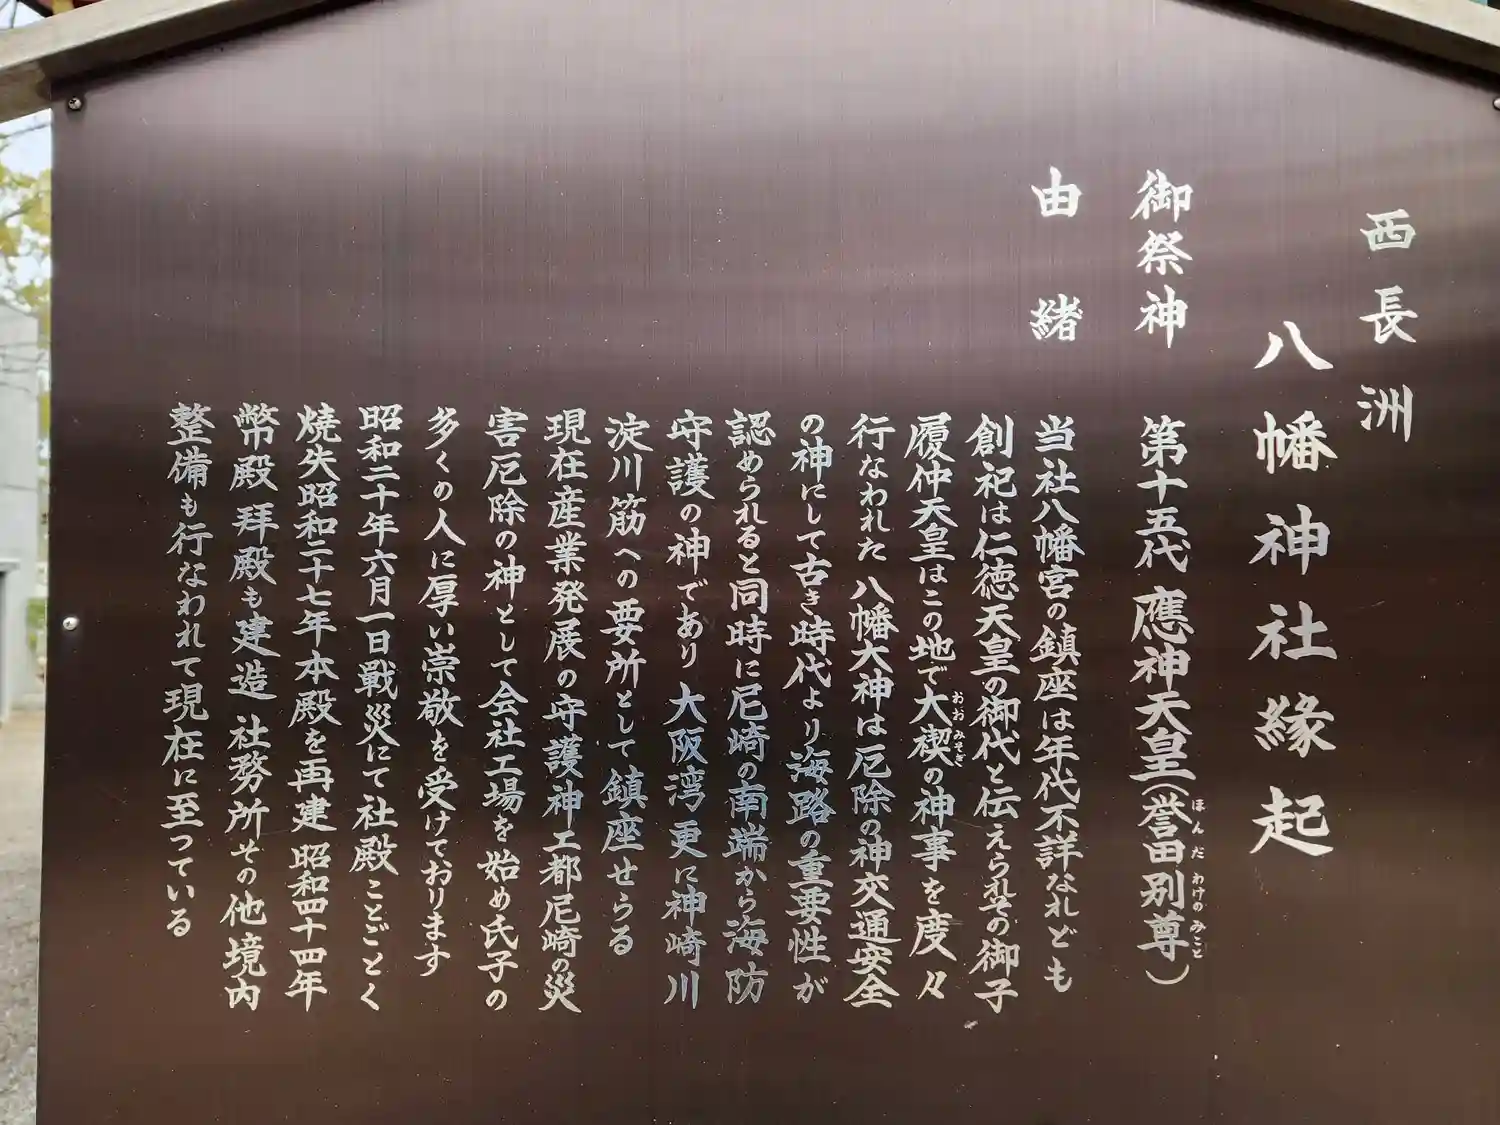 西長洲
八幡神社縁起
御祭神 第十五代 應神天皇(誉田別尊)
ほんだわけのみこと
由緒 当社八幡宮の鎮座は年代不詳なれども
創祀は仁徳天皇の御代と伝えられその御子
履仲天皇はこの地で大禊の神事を度々
おおみそぎ
行なわれた 八幡大神は厄除の神交通安全
の神にして古き時代より海路の重要性が
認められると同時に尼崎の南端から海防
守護の神であり 大阪湾更に神崎川
淀川筋への要所として鎮座せらる
現在産業発展の守護神工都尼崎の災
害厄除の神として会社工場を始め氏子の
多くの人に厚い崇敬を受けております
昭和二十年六月一日戦災にて社殿ことごとく
焼失昭和二十七年本殿を再建 昭和四十四年
幣殿拝殿も建造 社務所その他境内
整備も行なわれて現在に至っている